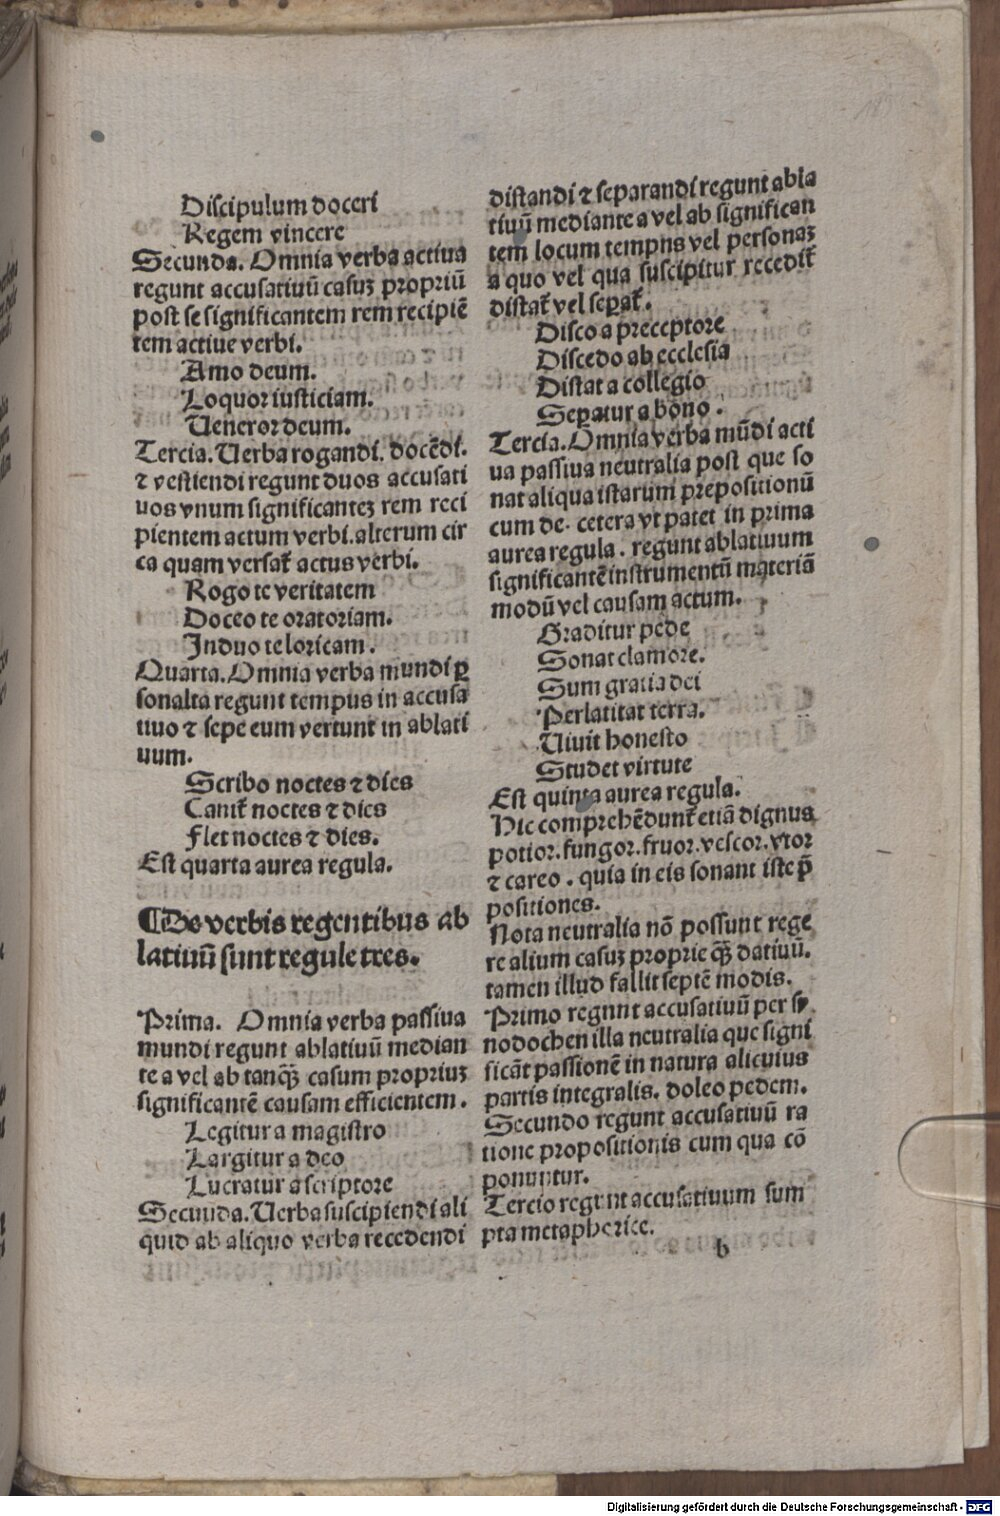 Discipulum doceri
Regem vincere
Secunda. Omnia verba actiua
regunt accusatiuū casuʒ propriū
post se significantem rem recipiē
tem actiue verbi.
Amo deum.
Loquor iusticiam.
Veneror deum.
Tercia. Verba rogandi. docēdi.
⁊ vestiendi regunt duos accusati
uos vnum significanteʒ rem reci
pientem actum verbi. alterum cir
ca quam versat̄ actus verbi.
Rogo te veritatem
Doceo te oratoriam.
Induo te loricam.
Quarta. Omnia verba mundi ꝑ
sonalia regunt tempus in accusa
tiuo ⁊ sepe eum vertunt in ablati
uum.
Scribo noctes ⁊ dies
Canit̄ noctes ⁊ dies
Flet noctes ⁊ dies.
Est quarta aurea regula.
¶De verbis regentibus ab
latiuū sunt regule tres.
Prima. Omnia verba passiua
mundi regunt ablatiuū median
te a vel ab tanqȝ̄ casum propriuʒ
significantē causam efficientem.
Legitur a magistro
Largitur a deo
Lucratur a scriptore
Secunda. Verba suscipiendi ali
quid ab aliquo verba recedendi
distandi ⁊ separandi regunt abla
tiuū mediante a vel ab significan
tem locum tempus vel personaʒ
a quo vel qua suscipitur recedit̄
distat̄ vel seꝑat̄.
Disco a preceptore
Discedo ab ecclesia
Distat a collegio
Seꝑatur a bono.
Tercia. Omnia verba mūdi acti
ua passiua neutralia post que so
nat aliqua istarum prepositionū
cum de. cetera vt patet in prima
aurea regula. regunt ablatiuum
significantē instrumentū materiā
modū vel causam actum.
Graditur pede
Sonat clamore.
Sum gratia dei
Perlatitat terra.
Viuit honesto
Studet virtute
Est quinta aurea regula.
Hic comprehēdunt̄ etiā dignus
potior. fungor. fruor. vescor. vtor
⁊ careo. quia in eis sonant iste p̄
positiones.
Nota neutralia nō possunt rege
re alium casuʒ proprie qȝ̄ datiuū.
tamen illud fallit septē modis.
Primo regunt accusatiuū per sy
nodochen illa neutralia que signi
ficāt passionē in natura alicuius
partis integralis. doleo pedem.
Secundo regunt accusatiuū ra
tione propositionis cum qua cō
ponuntur.
Tercio regunt accusatiuum sum
pta metapherice.
b
Digitalisierung gefördert durch die Deutsche Forschungsgemeinschaft - DFG